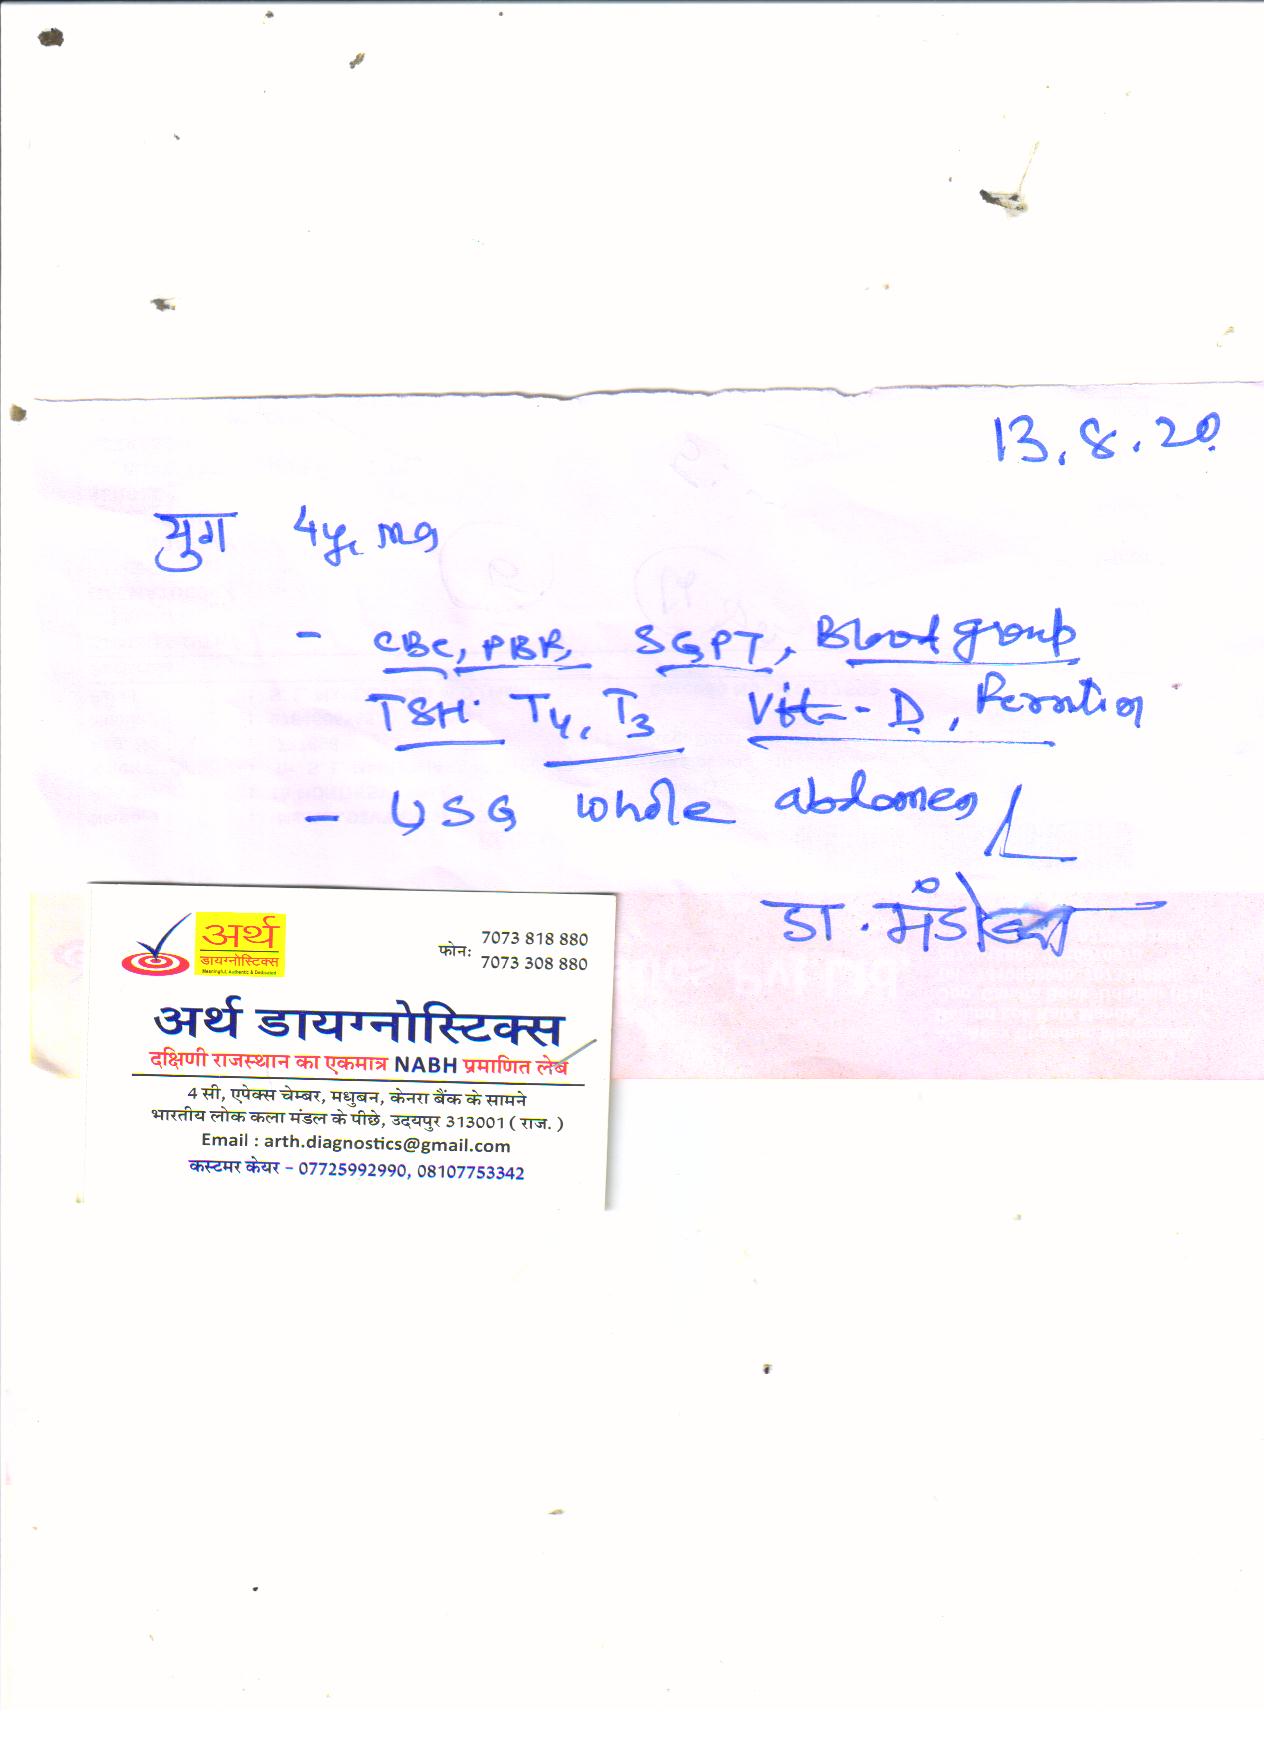 13.8.20
युग 4y, mg
- CBC, PBF, SGPT, Blood group
TSH. T4, T3 Vit-D, Ferritin
- USG whole abdomen
डा.
अर्थ
डायग्नोस्टिक्स
Meaningful, Authentic & Dedicated
फोनः 7073 818 880
7073 308 880
अर्थ डायग्नोस्टिक्स
दक्षिणी राजस्थान का एकमात्र NABH प्रमाणित लेब
4 सी, एपेक्स चेम्बर, मधुबन, केनरा बैंक के सामने
भारतीय लोक कला मंडल के पीछे, उदयपुर 313001 ( राज. )
Email : arth.diagnostics@gmail.com
कस्टमर केयर – 07725992990, 08107753342